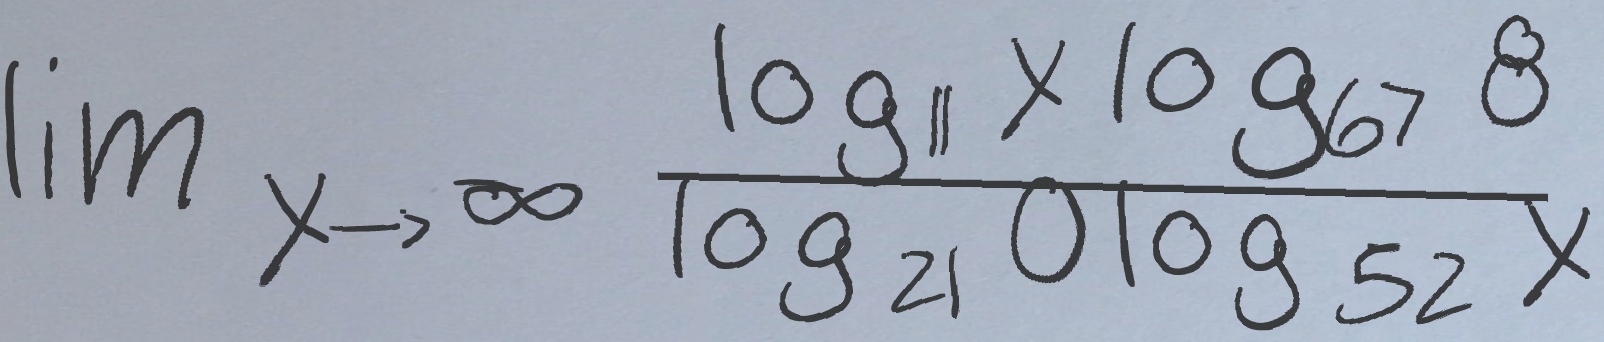 lim x→∞ (log₁₁ x log₆₇ 8)/(log₂₁ 0 log₅₂ x)